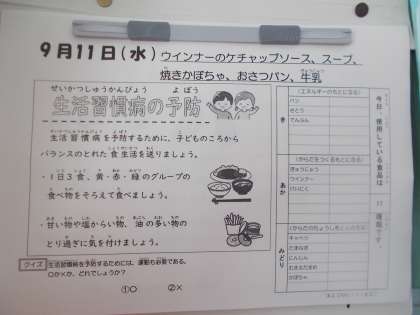 9月11日(水) ウインナーのケチャップソース、スープ、
焼きかぼちゃ、おさつパン、牛乳
せいかつしゅうかんびょう よぼう
生活習慣病の予防
生活習慣病を予防するために、子どものころから
バランスのとれた食生活を送りましょう。
・1日3食、黄・赤・緑のグループの
食べ物をそろえて食べましょう。
・甘い物や塩からい物、油の多い物の
とり過ぎに気を付けましょう。
クイズ 生活習慣病を予防するためには、運動も必要である。
○か×か、どれでしょうか？
①○ ②×
今日、使用している食品は
11
種類です。
き
(エネルギーのもとになる)
パン
さとう
でんぷん
あか
(からだをつくるもとになる)
ぎゅうにゅう
ウインナー
みどり
(からだのちょうしをととのえる)
キャベツ
たまねぎ
にんじん
かぼちゃ